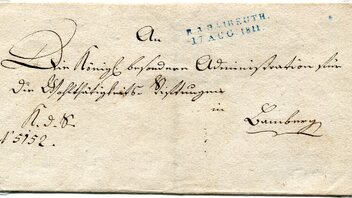 R.3.BAIREUTH.
17 AUG. 1811.
An
Die Königl. besondere Administration für
die Wohlthätigkeits-Stiftungen
in
K. d. S.
Bamberg
N 5152.